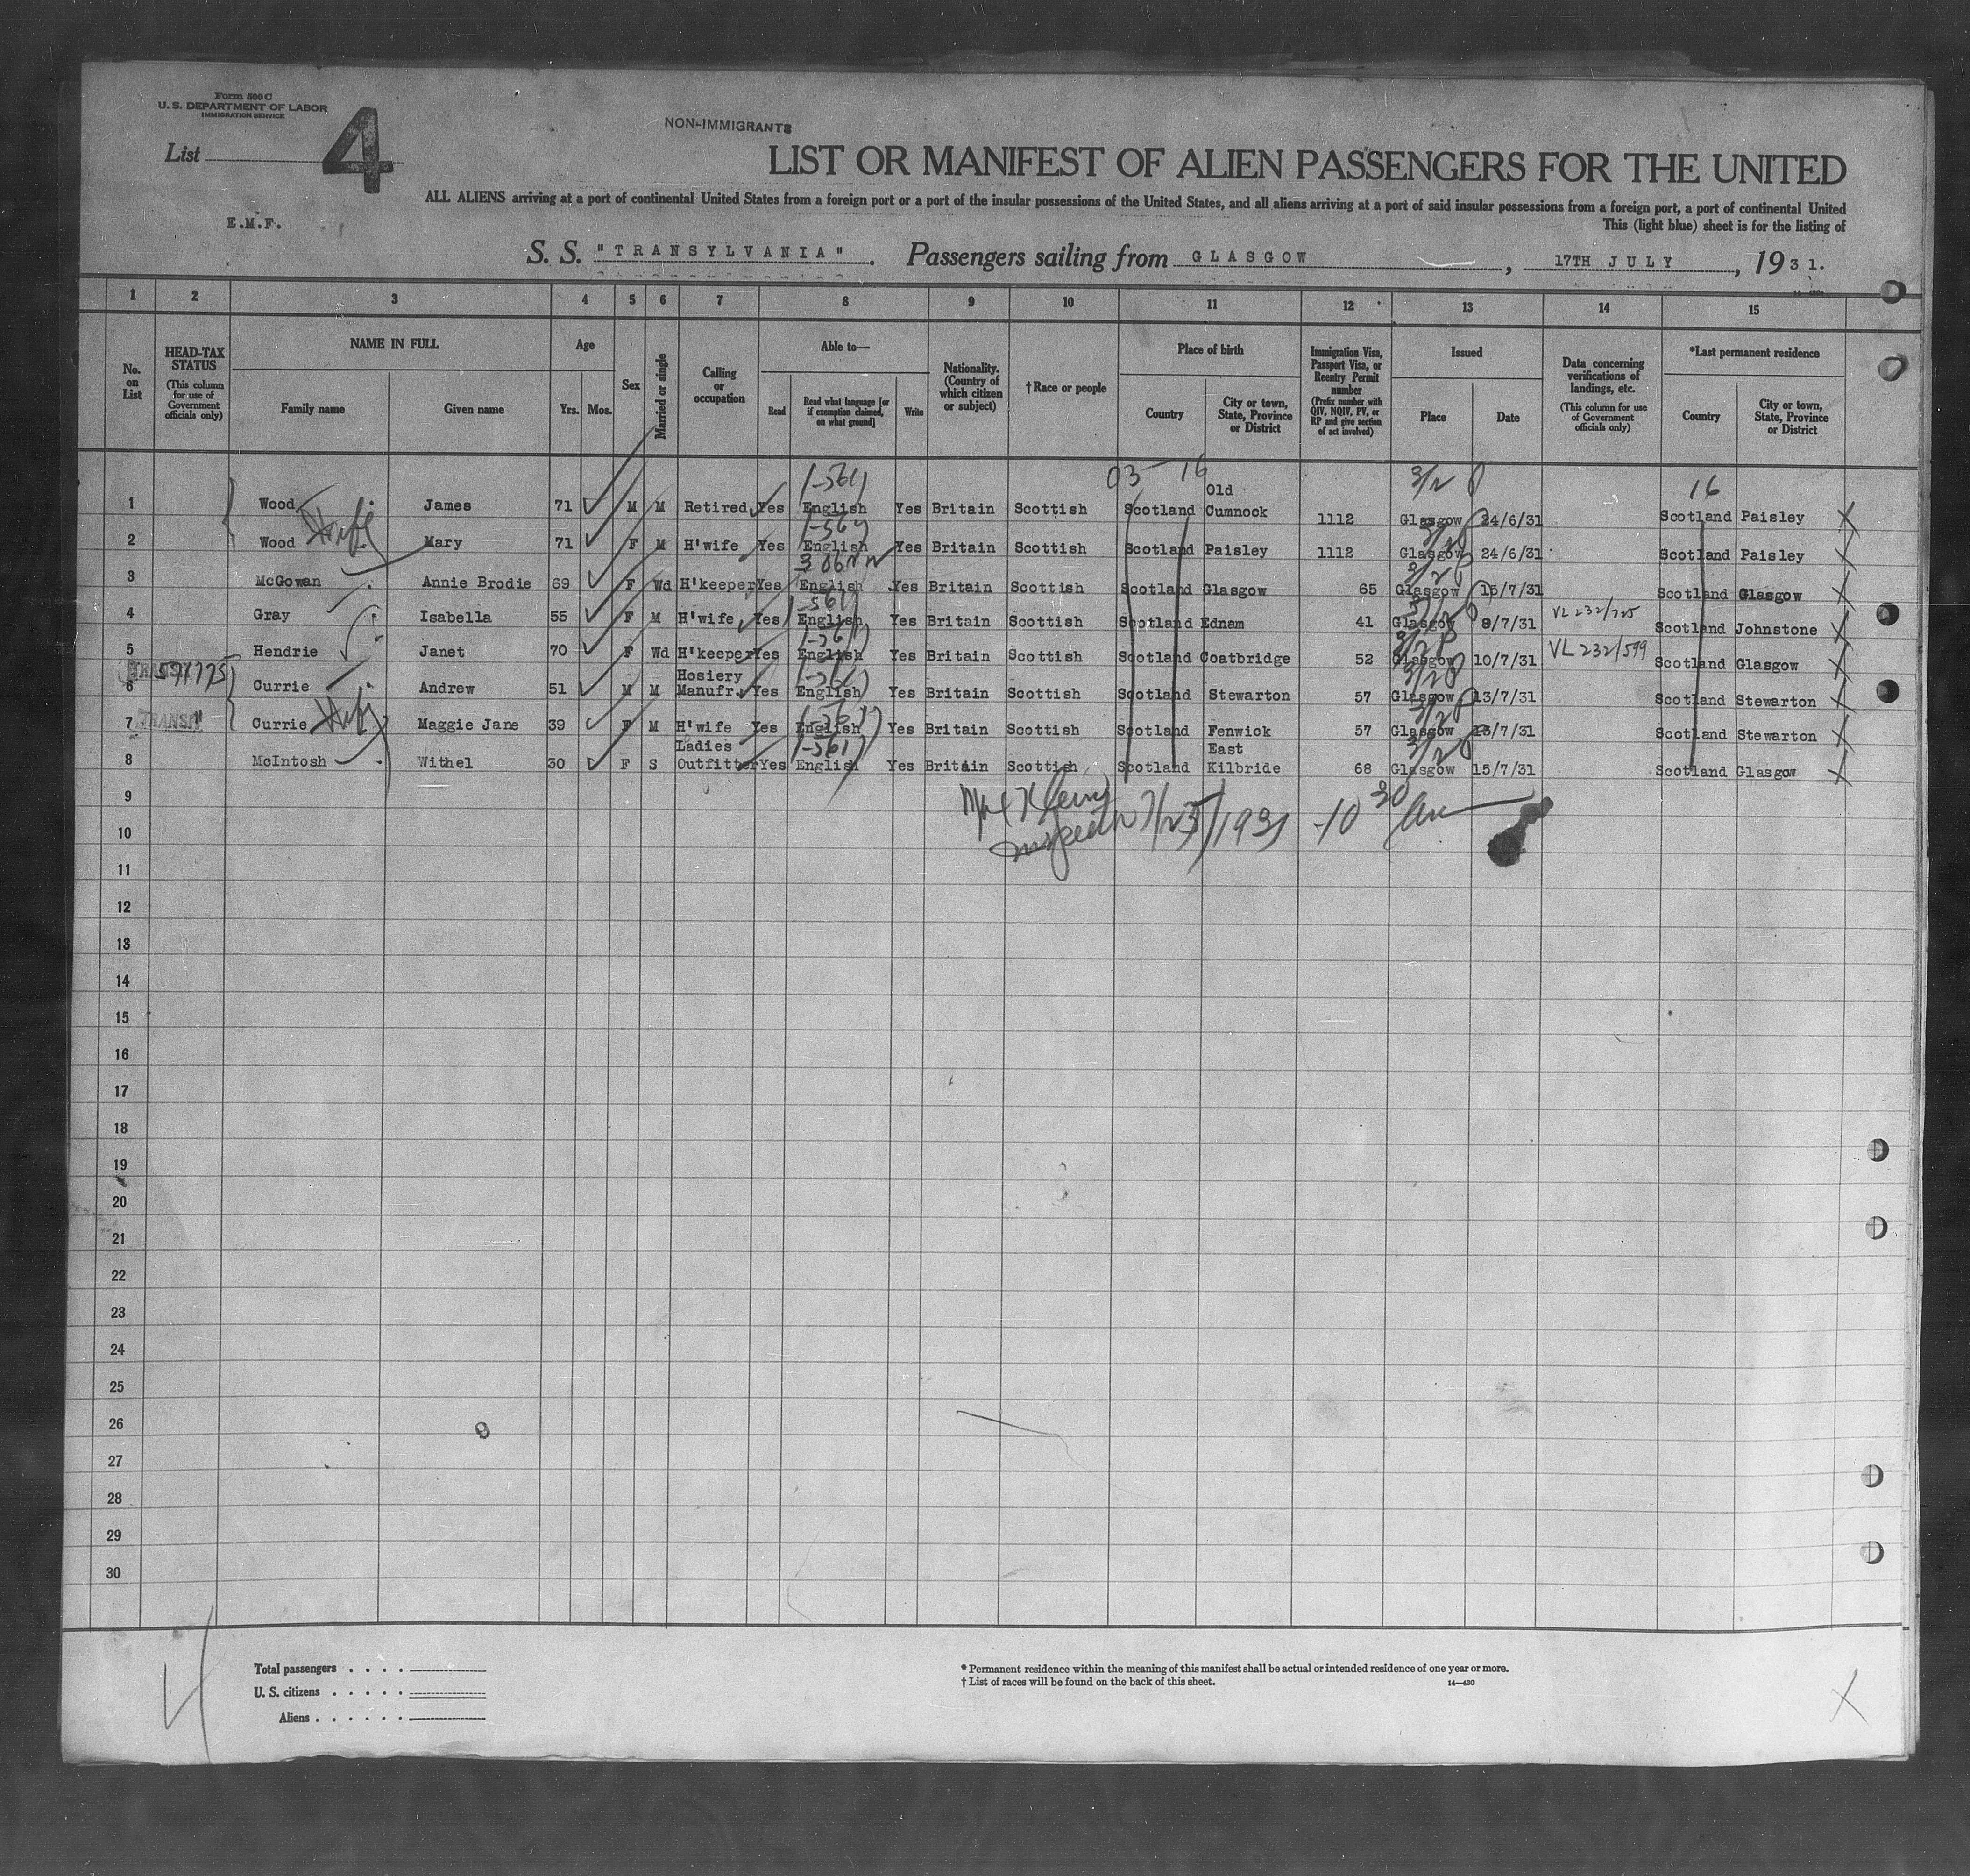 Form 500 C
U. S. DEPARTMENT OF LABOR
IMMIGRATION SERVICE
List 4
NON-IMMIGRANTS
LIST OR MANIFEST OF ALIEN PASSENGERS FOR THE UNITED
ALL ALIENS arriving at a port of continental United States from a foreign port or a port of the insular possessions of the United States, and all aliens arriving at a port of said insular possessions from a foreign port, a port of continental United
E.M.F.
This (light blue) sheet is for the listing of
S. S. "TRANSYLVANIA". Passengers sailing from GLASGOW, 17TH JULY, 1931.
1 2 3 4 5 6 7 8 9 10 11 12 13 14 15
No. on List
HEAD-TAX STATUS (This column for use of Government officials only)
NAME IN FULL
Family name
Given name
Age
Yrs. Mos.
Sex
Married or single
Calling or occupation
Able to—
Read
Read what language [or if exemption claimed, on what ground]
Write
Nationality. (Country of which citizen or subject)
†Race or people
Place of birth
Country
City or town, State, Province or District
Immigration Visa, Passport Visa, or Reentry Permit number (Prefix number with QIV, NQIV, PV, or RP and give section of act involved)
Issued
Place
Date
Data concerning verifications of landings, etc. (This column for use of Government officials only)
*Last permanent residence
Country
City or town, State, Province or District
03-16 16
1 Wood James 71 M M Retired Yes English Yes Britain Scottish Scotland Old Cumnook 1112 Glasgow 24/6/31 Scotland Paisley X
2 Wood Mary 71 F M H'wife Yes English Yes Britain Scottish Scotland Paisley 1112 Glasgow 24/6/31 Scotland Paisley X
3 McGowan Annie Brodie 69 F Wd H'keeper Yes English Yes Britain Scottish Scotland Glasgow 65 Glasgow 15/7/31 Scotland Glasgow X
4 Gray Isabella 55 F M H'wife Yes English Yes Britain Scottish Scotland Ednam 41 Glasgow 9/7/31 VL 232/725 Scotland Johnstone X
5 Hendrie Janet 70 F Wd H'keeper Yes English Yes Britain Scottish Scotland Coatbridge 52 Glasgow 10/7/31 VL 232/599 Scotland Glasgow X
6 Currie Andrew 51 M M Hosiery Manufr. Yes English Yes Britain Scottish Scotland Stewarton 57 Glasgow 13/7/31 Scotland Stewarton X
7 TRANSIT Currie Maggie Jane 39 F M H'wife Yes English Yes Britain Scottish Scotland Fenwick 57 Glasgow 13/7/31 Scotland Stewarton X
8 McIntosh Withel 30 F S Ladies Outfitter Yes English Yes Britain Scottish Scotland East Kilbride 68 Glasgow 15/7/31 Scotland Glasgow X
9
10 7/25/1931 -10 30
11
12
13
14
15
16
17
18
19
20
21
22
23
24
25
26
27
28
29
30
Total passengers
U. S. citizens
Aliens
* Permanent residence within the meaning of this manifest shall be actual or intended residence of one year or more.
† List of races will be found on the back of this sheet.
14—430
4
X